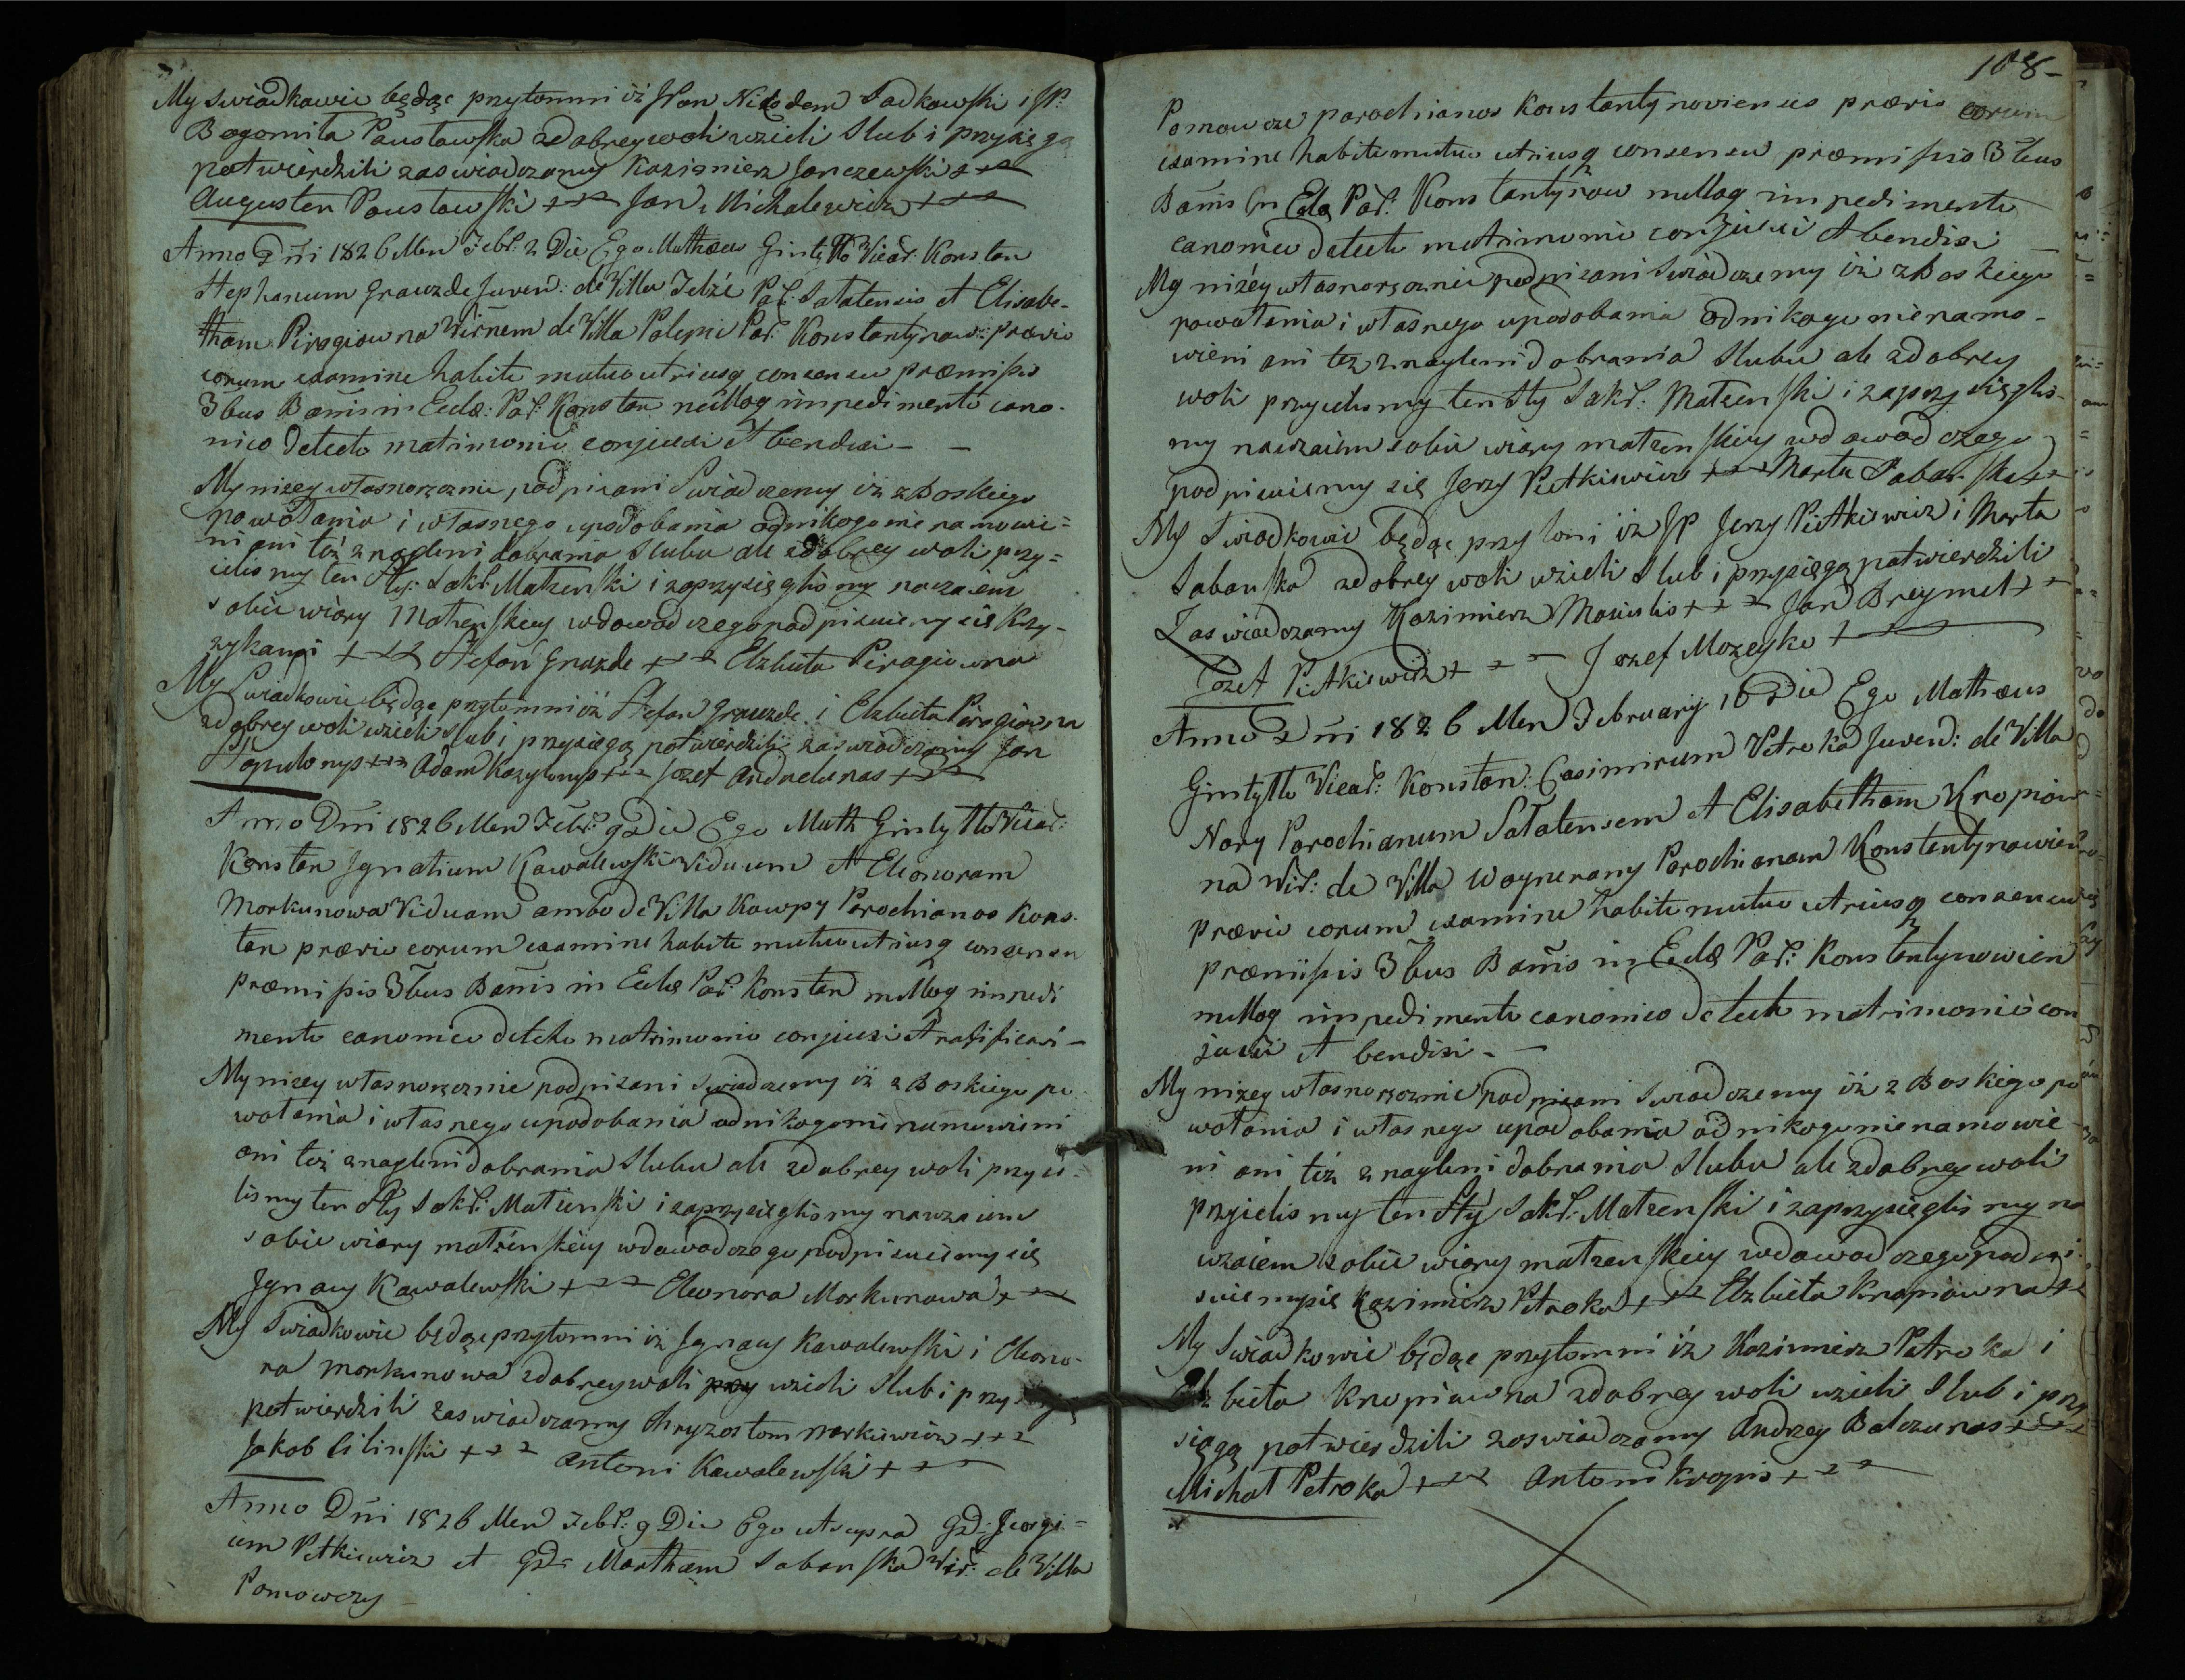 My swiadkowie będąc przytomni iż JPan Nikodem Sadkowski i JP:
Bogomiła Paustawska zdobrey woli wzieli Slub i przysięgą
potwierdzili zaswiadczamy Kazimierz Janczewski +++
Augusten Paustawski +++ Jan Michalewicz +++
Anno Dñi 1826 Men Febr: 2 Die Ego Mathaeus Gintyłło Vicar: Konstan
Stephanum Grauzde Juven: de Villa Jelzie Par: Sałatensis et Elisabe-
tham Piragiowna Virñem de Villa Palepie Par: Konstantynow: praevio
eorum examine habito mutuo utriusq consensu praemissis
3bus Bañis in Eccla: Par: Konstan nulloq impedimento cano-
nico detecto matrimonio conjunxi et bendixi - -
My niżey własnoręcznie podpisani Swiadczemy iż z Boskiego
powołania i własnego upodobania od nikogo nie namowie=
ni ani też znagleni do brania Slubu ale zdobrey woli przy=
ielismy ten Sty: Sakr: Małżenski i zaprzysięglismy nawzaiem
sobie wiary Małżenskiey wdowod czego podpisuiemy się Krzy-
zykami +++ Stefan Grauzde +++ Elzbieta Piragiowna
My Swiadkowie będąc przytomni iż Stefan Grauzde i Elzbieta Piragiowna
zdobrey woli wzieli Slub i przysięgą potwierdzili zaswiadczamy Jan
+++ Adam +++ Jozef Andrelunas +++
Anno Dñi 1826 Men Febr: 9 Die Ego Math Gintyłło Vicar:
Konstan Ignatium Kawalewski Viduum et Eleonoram
Morkunowa Viduam ambo de Villa Kawpy Parochianos Kons-
tan praevio eorum examine habito mutuo utriusq consensu
praemissis 3bus Bañis in Eccla Par: Konstan nulloq impedi
mento canonico detecto matrimonio conjunxi et ratificavi -
My niżey własnoręcznie podpisani swiadczemy iż z Boskiego po
wołania i własnego upodobania od nikogo nie namowieni
ani też znagleni do brania Slubu ale zdobrey woli przyie-
lismy ten Sty Sakr: Małżenski i zaprzysięglismy nawzaiem
sobie wiary małżenskiey wdowod czego podpisuiemy się
Ignacy Kawalewski +++ Eleonora Morkunowa +++
My Swiadkowie będąc przytomni iż Ignacy Kawalewski i Eleono-
ra Morkunowa zdobrey woli wzieli Slub i przysięgą
potwierdzili zaswiadczamy Chryzostom Norkiewicz +++
Jakob Cilinski +++ Antoni Kawalewski +++
Anno Dñi 1826 Men Febr: 9 Die Ego ut supra GD: Georgi=
um Petkiewicz et GD: Martham Sabanska Vir: de Villa
Pomowczy
108-
Pomowcze parochianos Konstantynoviensis praevio eorum
examine habito mutuo utriusq consensu praemissis 3bus
Bañis in Eccla Par: Konstantynow nulloq impedimento
canonico detecto matrimonio conjunxi et bendixi -
My niżey własnoręcznie podpisani Swiadczemy iż z Boskiego
powołania i własnego upodobania od nikogo nie namo-
wieni ani też znagleni do brania Slubu ale zdobrey
woli przyielismy ten Sty Sakr: Małżenski i zaprzysięglis-
my nawzaiem sobie wiary małżenskiey wdowod czego
podpisuiemy się Jerzy Pietkiewicz +++ Marta Sabanska ++
My Swiadkowie będąc przytomi iż JP Jerzy Pietkiewicz i Marta
Sabanska zdobrey woli wzieli Slub i przysięgą potwierdzili
Zaswiadczamy Kazimierz Masiulis +++ Jan Breymel ++
Jozef Pietkiewicz +++ Jozef Mozeyko +
Anno Dñi 1826 Men February 16 Die Ego Mathaeus
Gintyłło Vicar: Konstan: Casimirum Petroka Juven: de Villa
Nory Parochianum Sałatensem et Elisabetham Kropiow-
na Vir: de Villa Woynerany Parochianam Konstantynowien
praevio eorum examine habito mutuo utriusq consensu
praemissis 3bus Bañis in Eccla Par: Konstantynowien
nulloq impedimento canonico detecto matrimonio con
junxi et bendixi - -
My niżey własnoręcznie podpisani Swiadczemy iż z Boskiego po
wołania i własnego upodobania od nikogo nie namowie-
ni ani też znagleni do brania Slubu ale zdobrey woli
przyielismy ten Sty Sakr: Małżenski i zaprzysięglismy na
wzaiem sobie wiary małżenskiey wdowod czego podpi-
suiemy się Kazimierz Petroka +++ Elzbieta Kropiowna ++
My Swiadkowie będąc przytomni iż Kazimierz Petroka i
Elzbieta Kropiowna zdobrey woli wzieli Slub i przy-
sięgą potwierdzili zaswiadczamy Andrzey Balczunas +++
Michał Petroka +++ Antoni Kropis +++